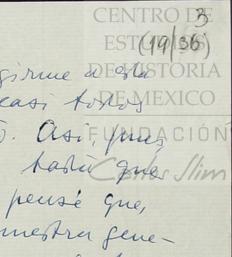 CENTRO DE
3
ESTUDIOS
(19/36)
DE HISTORIA
girme a esta
DE MEXICO
casi todos
Así, pues
FUNDACIÓN
hasta que
Carlos Slim
pensé que,
nuestra gene-